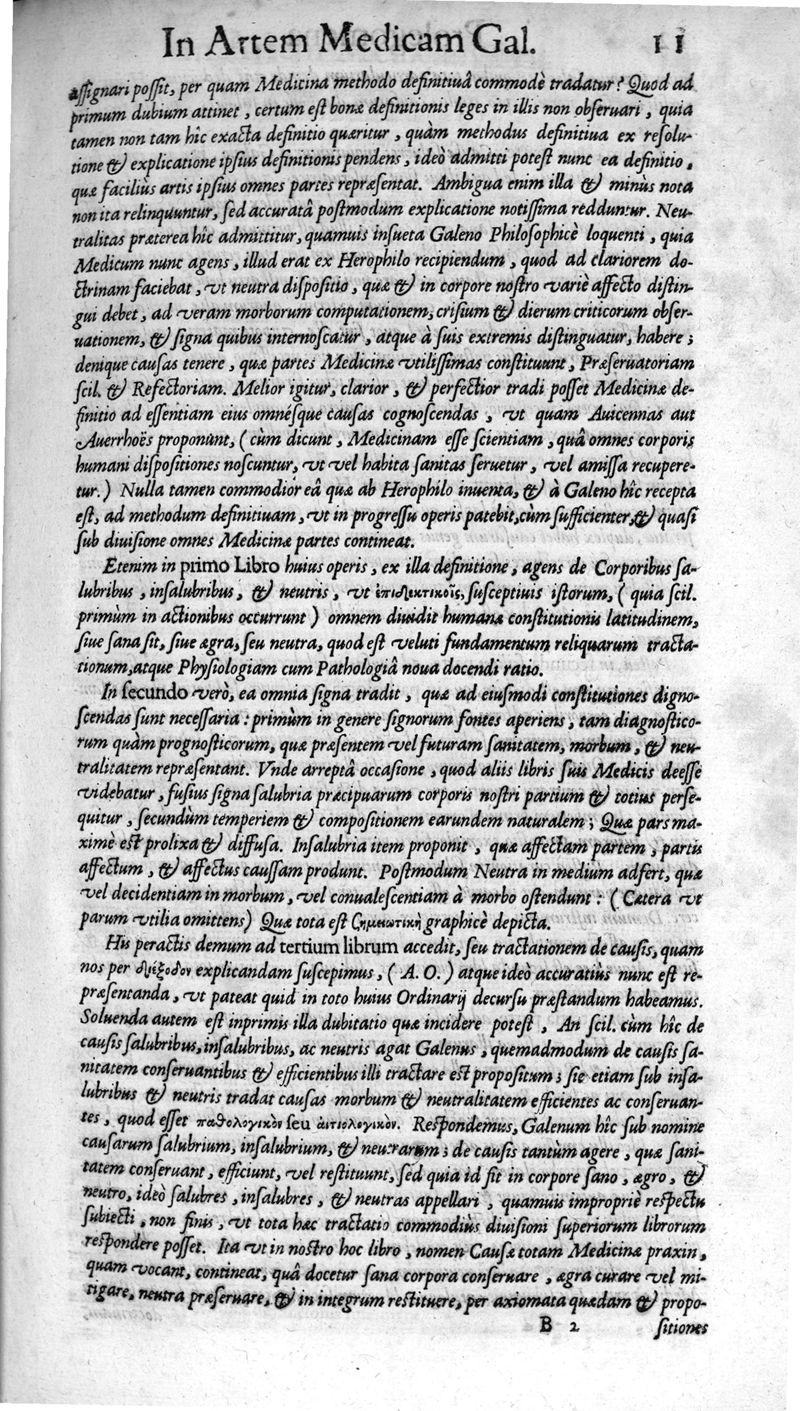 In Artem Medicam Gal. 11
assignari possit, per quam Medicina methodo definitiuâ commodè tradatur? Quod ad
primum dubium attinet, certum est bonæ definitionis leges in illis non obseruari, quia
tamen non tam hîc exacta definitio quæritur, quàm methodus definitiua ex resolu-
tione & explicatione ipsius definitionis pendens, ideò admitti potest nunc ea definitio,
quæ faciliùs artis ipsius omnes partes repræsentat. Ambigua enim illa & minùs nota
non ita relinquuntur, sed accuratâ postmodum explicatione notissima redduntur. Neu-
tralitas præterea hîc admittitur, quamuis insueta Galeno Philosophicè loquenti, quia
Medicum nunc agens, illud erat ex Herophilo recipiendum, quod ad clariorem do-
ctrinam faciebat, vt neutra dispositio, quæ & in corpore nostro variè affecto distin-
gui debet, ad veram morborum computationem, crisium & dierum criticorum obser-
uationem, & signa quibus internoscatur, atque à suis extremis distinguatur, habere;
denique causas tenere, quæ partes Medicinæ vtilissimas constituunt, Præseruatoriam
scil. & Refectoriam. Melior igitur, clarior, & perfectior tradi posset Medicinæ de-
finitio ad essentiam eius omnésque causas cognoscendas, vt quam Auicennas aut
Auerrhoës proponunt, (cùm dicunt, Medicinam esse scientiam, quâ omnes corporis
humani dispositiones noscuntur, vt vel habita sanitas seruetur, vel amissa recupere-
tur.) Nulla tamen commodior eâ quæ ab Herophilo inuenta, & à Galeno hîc recepta
est, ad methodum definitiuam, vt in progressu operis patebit, cùm sufficienter, & quasi
sub diuisione omnes Medicinæ partes contineat.
Etenim in primo Libro huius operis, ex illa definitione, agens de Corporibus sa-
lubribus, insalubribus, & neutris, vt ἐπιδεκτικοῖς, susceptiuis istorum, (quia scil.
primùm in actionibus occurrunt) omnem diuidit humanæ constitutionis latitudinem,
siue sana sit, siue ægra, seu neutra, quod est veluti fundamentum reliquarum tracta-
tionum, atque Physiologiam cum Pathologiâ noua docendi ratio.
In secundo verò, ea omnia signa tradit, quæ ad eiusmodi constitutiones digno-
scendas sunt necessaria: primùm in genere signorum fontes aperiens, tam diagnostico-
rum quàm prognosticorum, quæ præsentem vel futuram sanitatem, morbum, & neu-
tralitatem repræsentant. Vnde arreptâ occasione, quod aliis libris suis Medicis deesse
videbatur, fusius signa salubria præcipuarum corporis nostri partium & totius perse-
quitur, secundùm temperiem & compositionem earundem naturalem; Quæ pars ma-
ximè est prolixa & diffusa. Insalubria item proponit, quæ affectam partem, partis
affectum, & affectus caussam produnt. Postmodum Neutra in medium adfert, quæ
vel decidentiam in morbum, vel conualescentiam à morbo ostendunt: (Cætera vt
parum vtilia omittens) Quæ tota est Σημειωτικὴ graphicè depicta.
His peractis demum ad tertium librum accedit, seu tractationem de causis, quam
nos per διέξοδον explicandam suscepimus, (A. O.) atque ideò accuratiùs nunc est re-
præsentanda, vt pateat quid in toto huius Ordinarij decursu præstandum habeamus.
Soluenda autem est inprimis illa dubitatio quæ incidere potest, An scil. cùm hîc de
causis salubribus, insalubribus, ac neutris agat Galenus, quemadmodum de causis sa-
nitatem conseruantibus & efficientibus illi tractare est propositum; sic etiam sub insa-
lubribus & neutris tradat causas morbum & neutralitatem efficientes ac conseruan-
tes, quod esset παθολογικὸν seu αἰτιολογικὸν. Respondemus, Galenum hîc sub nomine
causarum salubrium, insalubrium, & neutrarum; de causis tantùm agere, quæ sani-
tatem conseruant, efficiunt, vel restituunt, sed quia id fit in corpore sano, ægro, &
neutro, ideò salubres, insalubres, & neutras appellari, quamuis impropriè respectu
subiecti, non finis, vt tota hæc tractatio commodiùs diuisioni superiorum librorum
respondere posset. Ita vt in nostro hoc libro, nomen Causæ totam Medicinæ praxin,
quam vocant, contineat, quâ docetur sana corpora conseruare, ægra curare vel mi-
tigare, neutra præseruare, & in integrum restituere, per axiomata quædam & propo-
B 2 sitiones